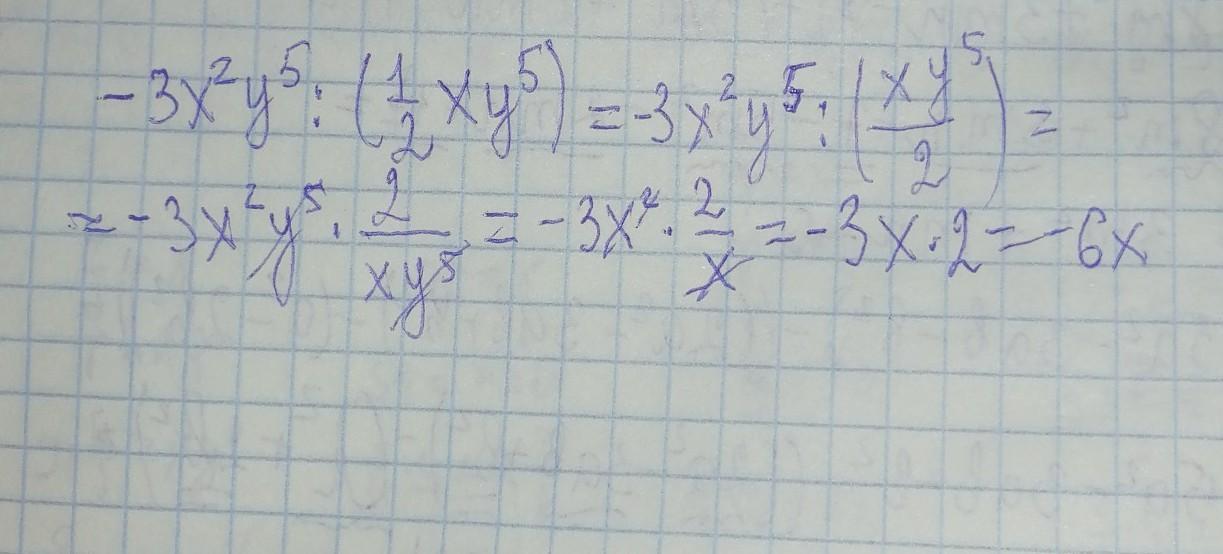 -3x²y⁵ : (1/2 xy⁵) = -3x²y⁵ : (xy⁵/2) =
= -3x²y⁵ · 2/xy⁵ = -3x² · 2/x = -3x · 2 = -6x